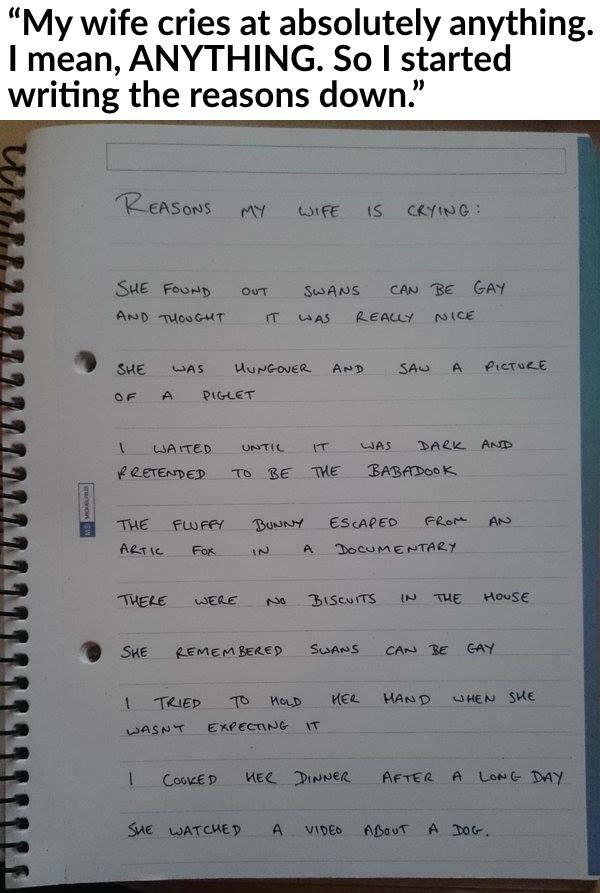 “My wife cries at absolutely anything.
I mean, ANYTHING. So I started
writing the reasons down.”
REASONS MY WIFE IS CRYING:
SHE FOUND OUT SWANS CAN BE GAY
AND THOUGHT IT WAS REALLY NICE
SHE WAS HUNGOVER AND SAW A PICTURE
OF A PIGLET
I WAITED UNTIL IT WAS DARK AND
PRETENDED TO BE THE BABADOOK
THE FLUFFY BUNNY ESCAPED FROM AN
ARTIC FOX IN A DOCUMENTARY
THERE WERE NO BISCUITS IN THE HOUSE
SHE REMEMBERED SWANS CAN BE GAY
I TRIED TO HOLD HER HAND WHEN SHE
WASNT EXPECTING IT
I COOKED HER DINNER AFTER A LONG DAY
SHE WATCHED A VIDEO ABOUT A DOG.
MIQUELRIUS